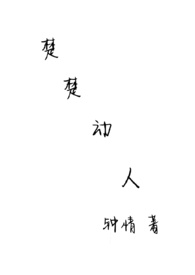 楚
楚
动
人
钟情著